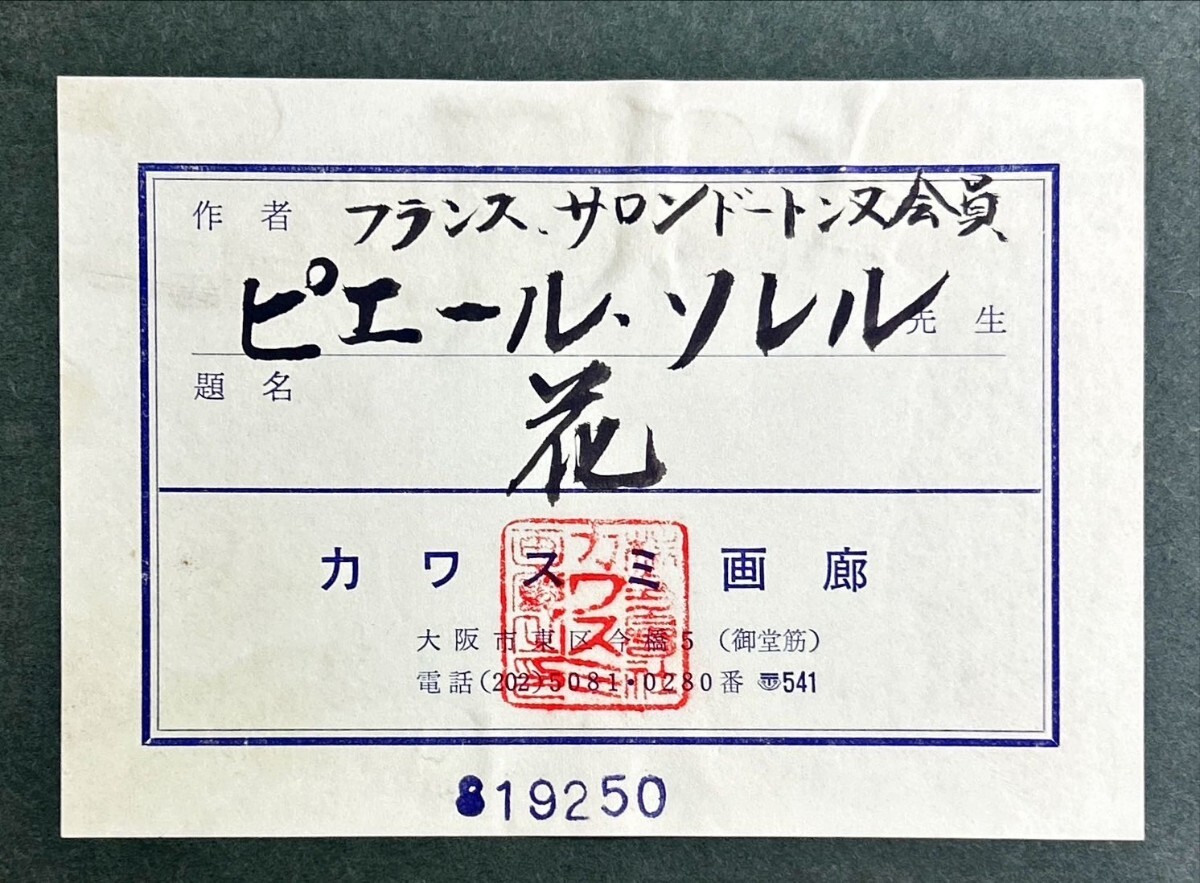 作者 フランス、サロンドートンヌ会員
ピエール・ソレル先生
題名
花
カワスミ画廊
大阪市東区今橋5（御堂筋）
電話(202)5081・0280番 〠541
カワスミ
819250